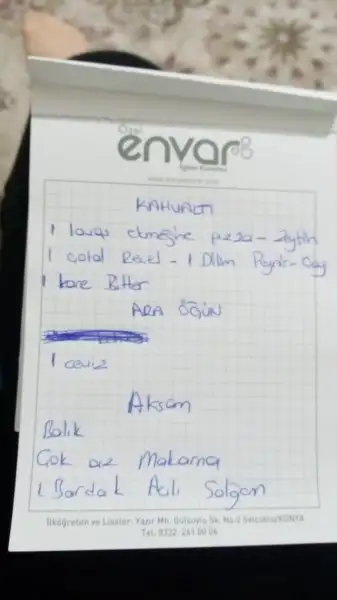 Özel
envar
Eğitim Kurumları
KAHVALTI
1 lavaş ekmeğine pizza - Zeytin
1 çatal Reçel - 1 Dilim Peynir - Çay
1 kare Bitter
ARA ÖĞÜN
1 ceviz
Akşam
Balık
Çok az Makarna
1 Bardak Acılı Şalgam
İlköğretim ve Liseler: Yazır Mh. Gülbahç Sk. No:2 Selçuklu/KONYA
Tel: 0332. 241 00 06